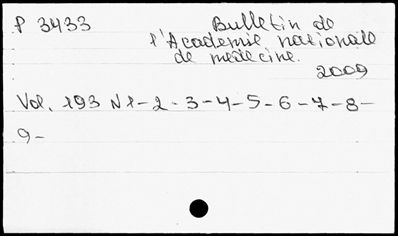 P 3433 Bulletin de
l'Academie nationale
de medecine.
2009
Vol. 193 N 1-2-3-4-5-6-7-8-
9-